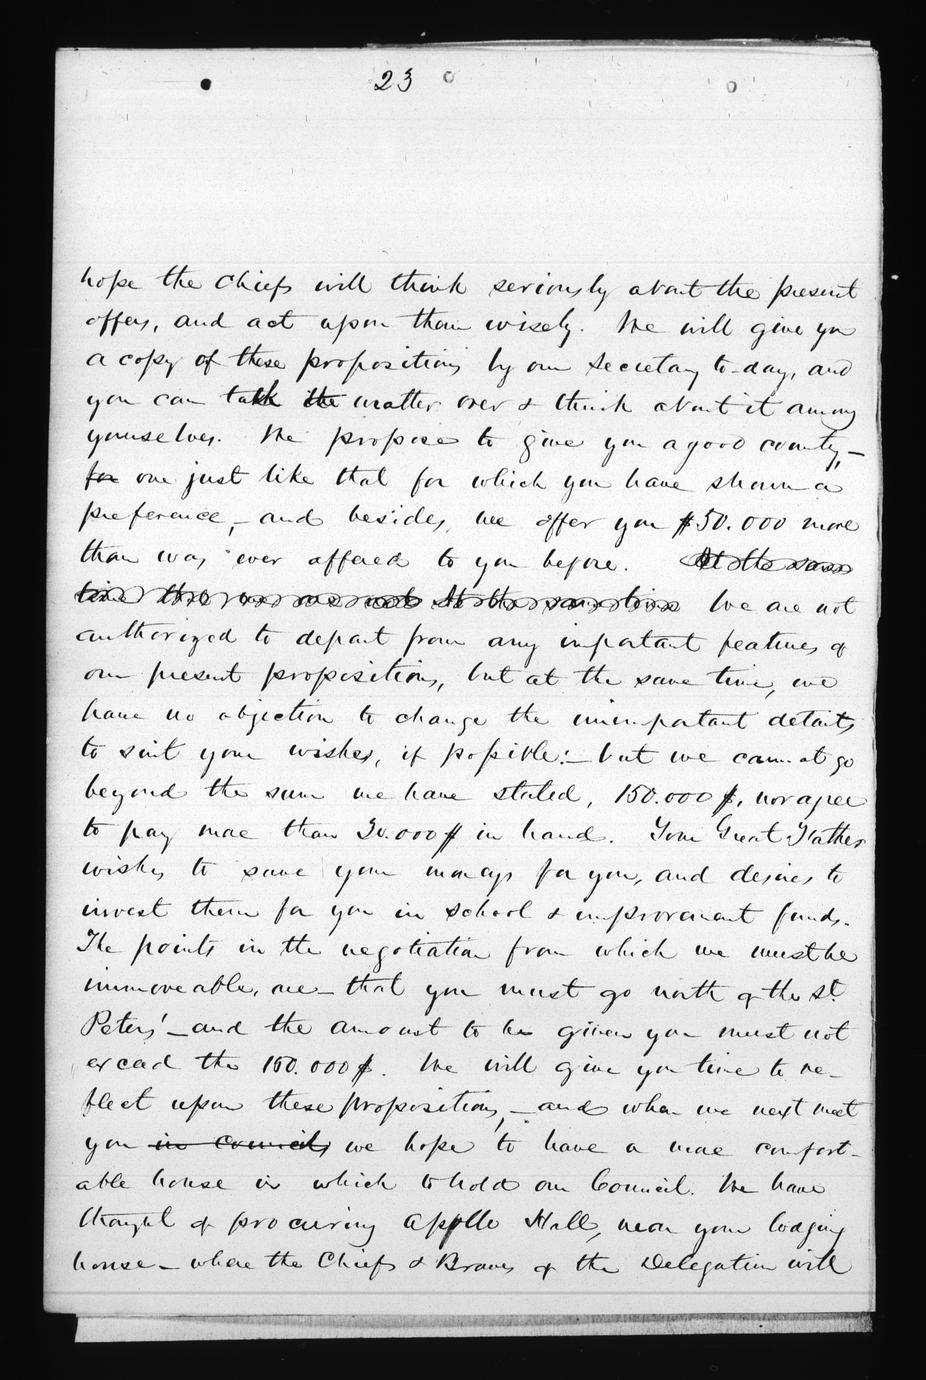 23
hope the Chiefs will think seriously about the present
offers, and act upon them wisely. We will give you
a copy of these propositions by our Secretary to-day, and
you can talk the matter over & think about it among
yourselves. We propose to give you a good country,—
for one just like that for which you have shown a
preference,—and besides, we offer you $50.000 more
than was ever offered to you before. At the same
time At the same time We are not
authorized to depart from any important features of
our present propositions, but at the same time, we
have no objection to change the unimportant details
to suit your wishes, if possible:—but we cannot go
beyond the sum we have stated, 150.000 $, nor agree
to pay more than 30.000 $ in hand. Your Great Father
wishes to save your moneys for you, and desires to
invest them for you in school & improvement funds.
The points in the negotiation from which we must be
immoveable, are—that you must go north of the St.
Peters'—and the amount to be given you must not
exceed the 150.000 $. We will give you time to re-
flect upon these propositions,—and when we next meet
you in council, we hope to have a more comfort-
able house in which to hold our Council. We have
thought of procuring Apollo Hall, near your lodging
house—where the Chiefs & Braves of the Delegation will